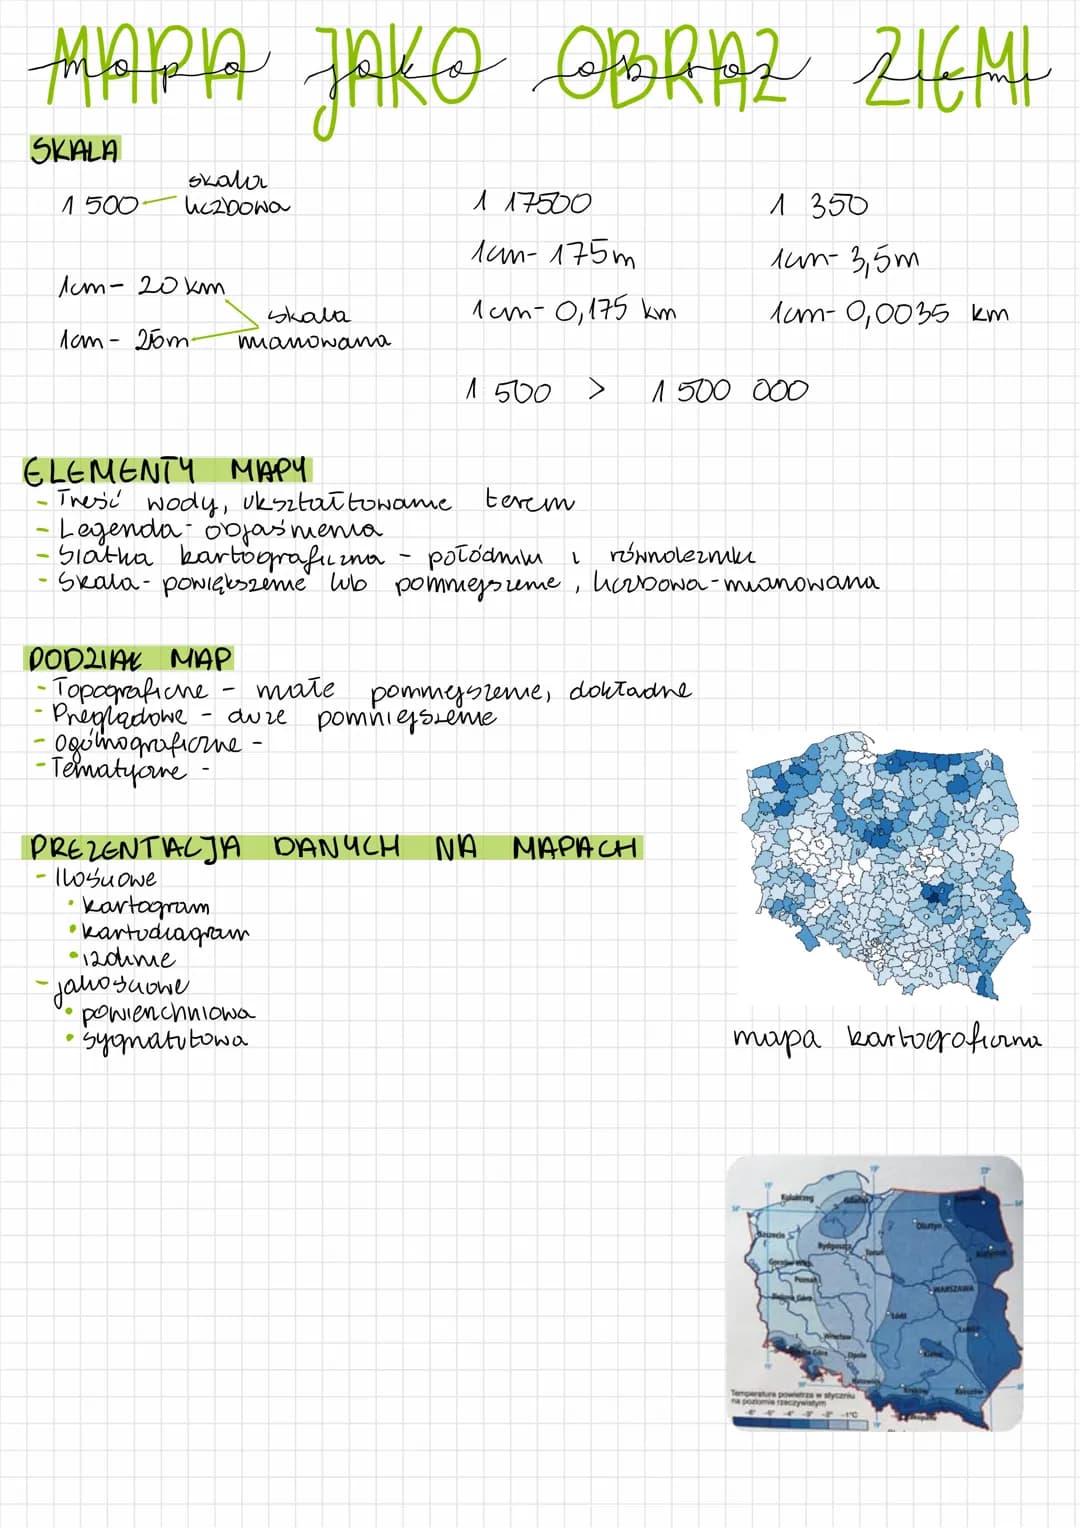 MAPA JAKO OBRAZ ZIEMI
mapa jako obraz ziemi
SKALA
1 500 skala
liczbowa
1cm- 20 km
1cm- 25m
skala
mianowana
1 17500
1cm- 175m
1cm- 0,175 km
1 350
1cm- 3,5m
1cm- 0,0035 km
1 500 > 1 500 000
ELEMENTY MAPY
- Treść wody, ukształtowanie teren
- Legenda- objaśnienia
- Siatka kartograficzna - połódniki i równoleżniki
- Skala- powiększenie lub pomniejszenie, liczbowa-mianowana
PODZIAŁ MAP
- Topograficzne - małe pomniejszenie, dokładne
- Preglądowe - duże pomniejszenie
- Ogólnograficzne -
- Tematyczne -
PREZENTACJA DANYCH NA MAPACH
- Ilościowe
• kartogram
• kartodiagram
• izolinie
- jakościowe
• powierzchniowa
• sygnatutowa
mapa kartograficzna
Kołobrzeg
Gdańsk
Olsztyn
Szczecin
Bydgoszcz
Toruń
Białystok
Gorzów Wlkp.
Poznań
WARSZAWA
Zielona Góra
Łódź
Lublin
Wrocław
Opole
Kielce
Katowice
Kraków
Rzeszów
Temperatura powietrza w styczniu
na poziomie rzeczywistym
-6° -5° -4° -3° -2° -1°C